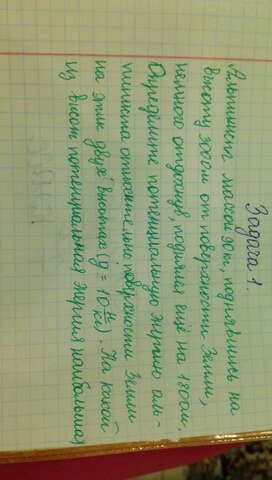 Задача 1.
Альпинист массой 80кг, поднявшись на
высоту 300м от поверхности Земли,
немного отдохнув, поднялся ещё на 180м.
Определите потенциальную энергию аль-
пиниста относительно поверхности Земли
на этих двух высотах (g = 10 Н/кг). На какой
из высот потенциальная энергия наибольшая